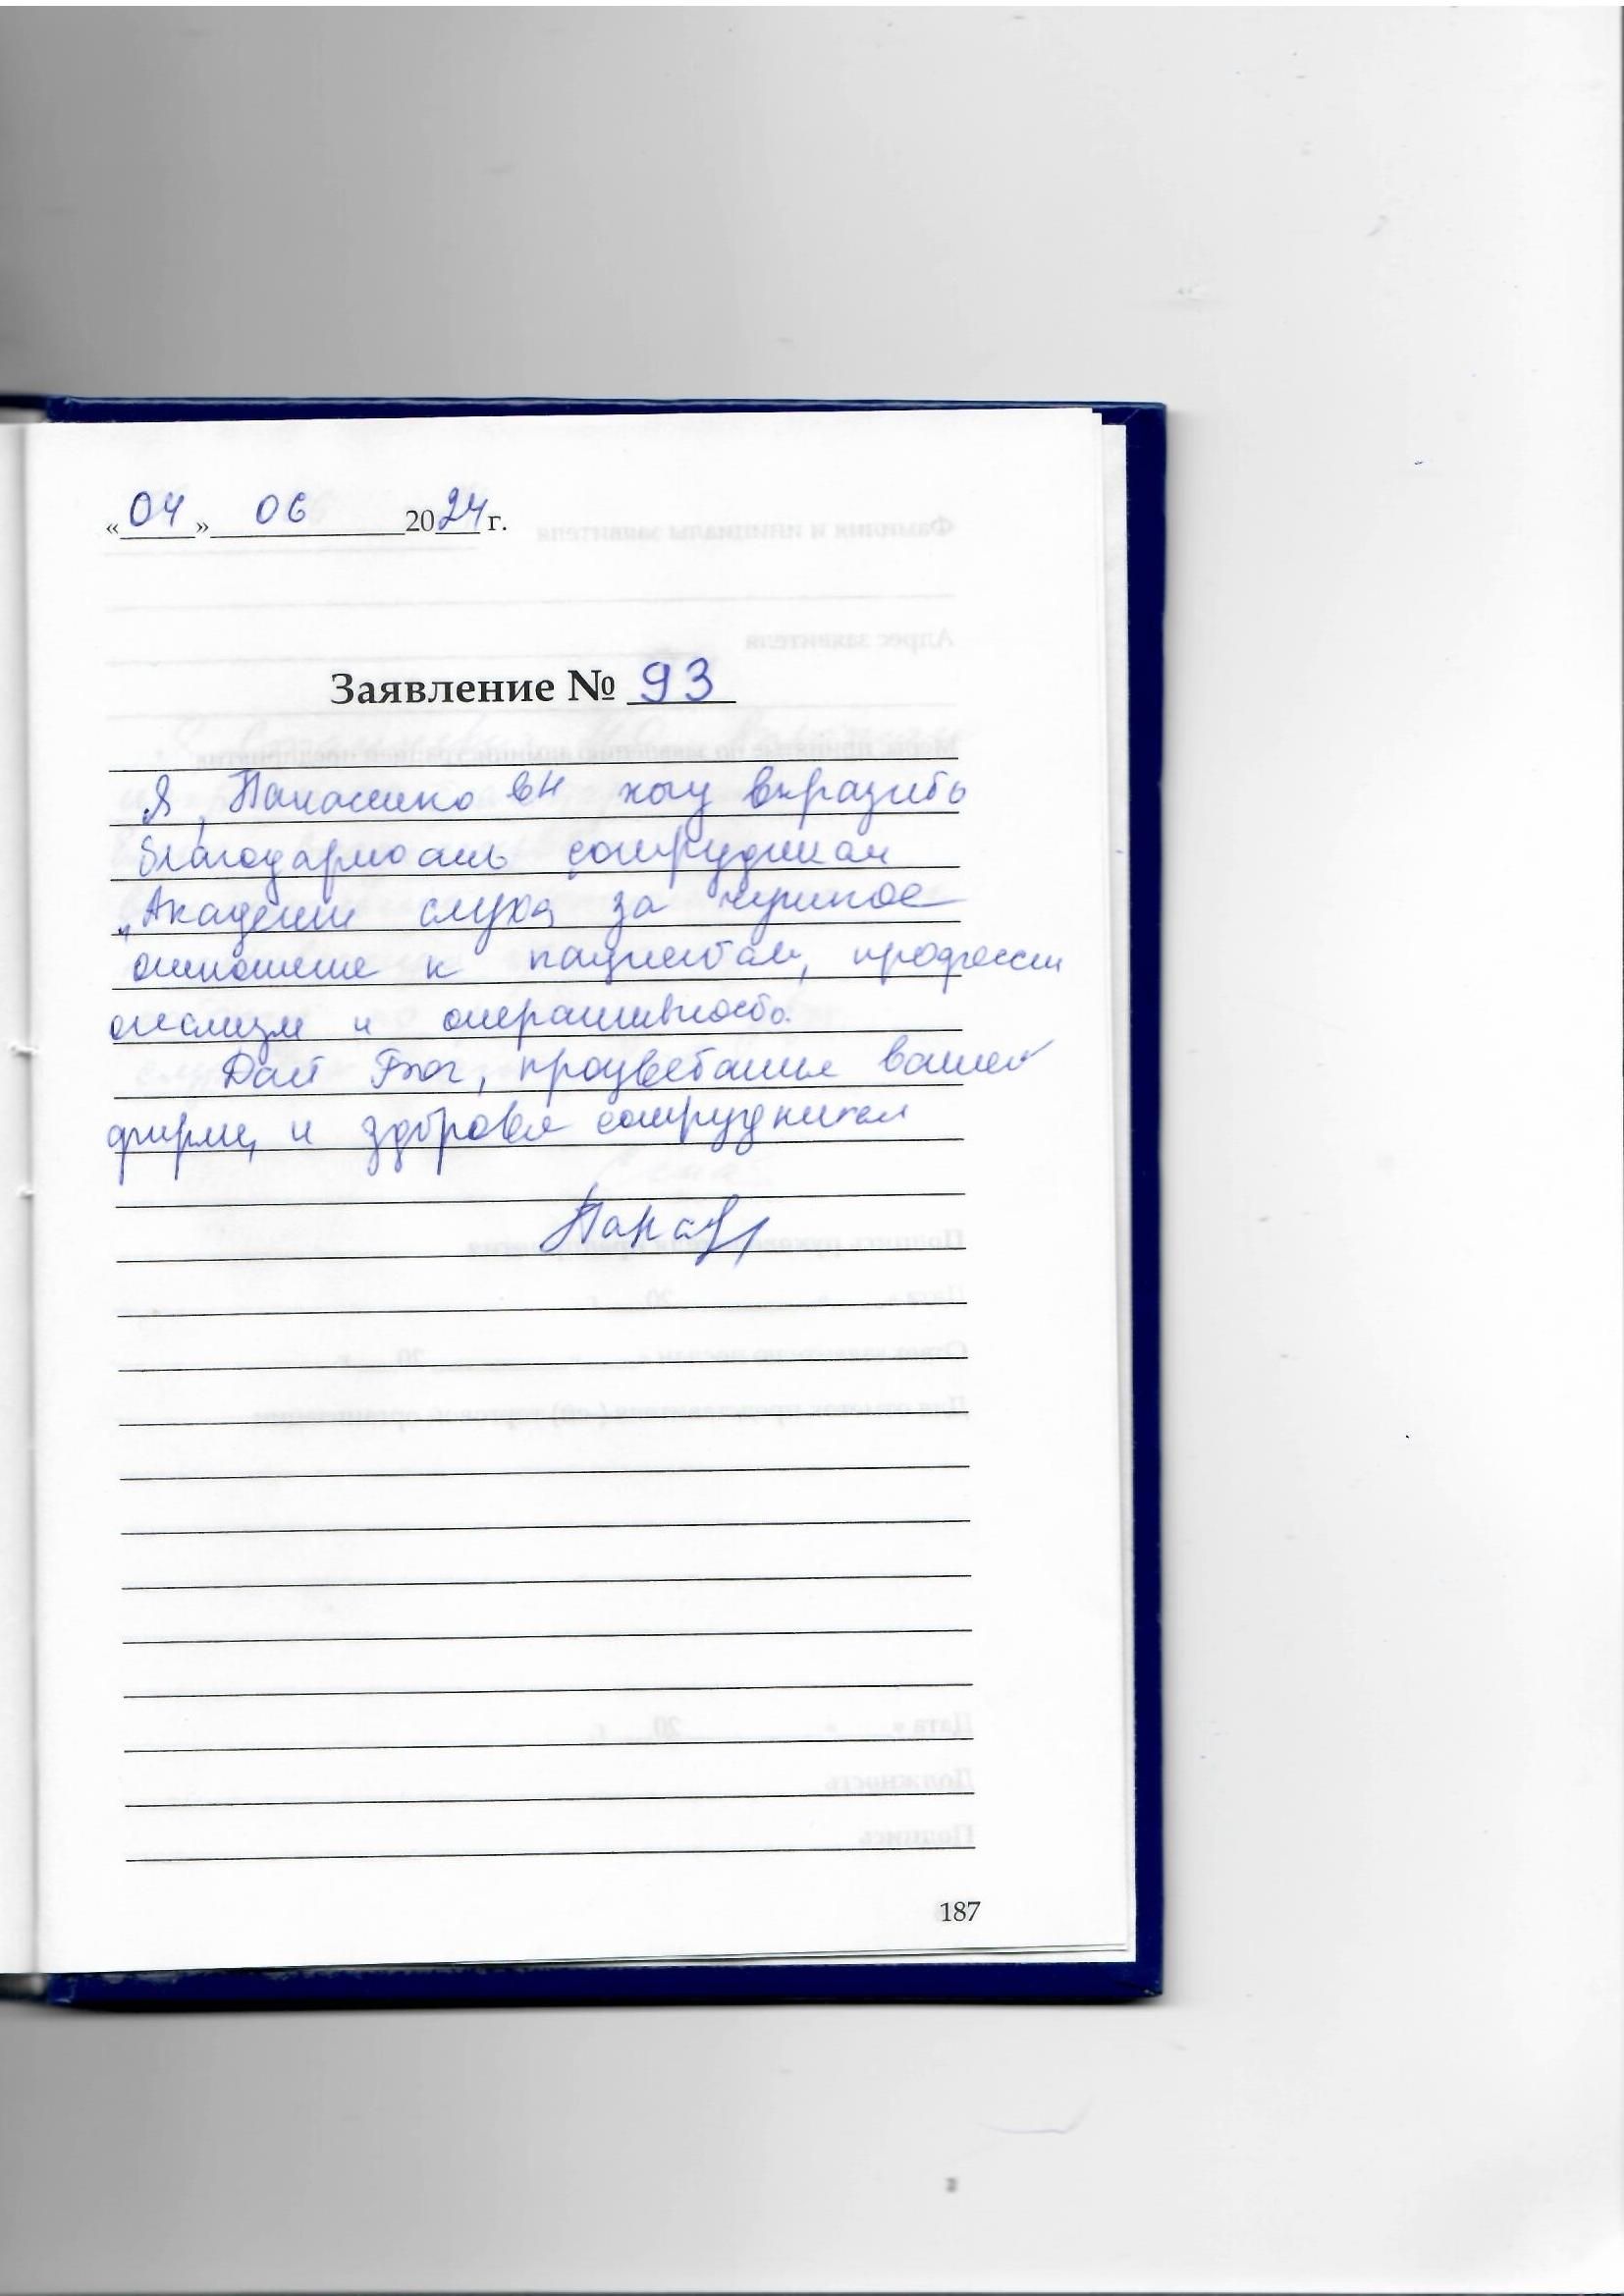 «04» 06 2024 г.
Заявление № 93
Я, Панасенко ВН хочу выразить
благодарность сотрудникам
„Академии слуха за чуткое
отношение к пациентам, професси
онализм и оперативность.
Дай Бог, процветание вашей
фирме, и здоровья сотрудникам
187